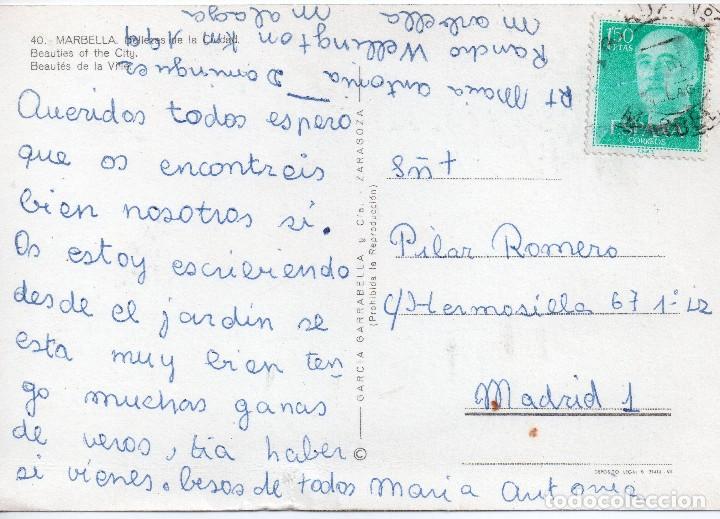 40. - MARBELLA. Bellezas de la Ciudad.
Beauties of the City.
Beautés de la Ville.
Queridos todos espero
que os encontreis
bien nosotros si.
Os estoy escribiendo
desde el jardín se
esta muy bien ten-
go muchas ganas
de veros, tia haber
si vienes. besos de todos María Antonia
Rt Maria antonia Dominguez
Rancho Wellington km
Marbella
Malaga
GARCIA GARRABELLA y Cía. - ZARAGOZA
(Prohibida la Reproducción)
©
1'50
PTAS
ESPAÑA
CORREOS
Sñt
Pilar Romero
c/Hermosilla 67 1º iz
Madrid 1
DEPOSITO LEGAL B.
todocoleccion